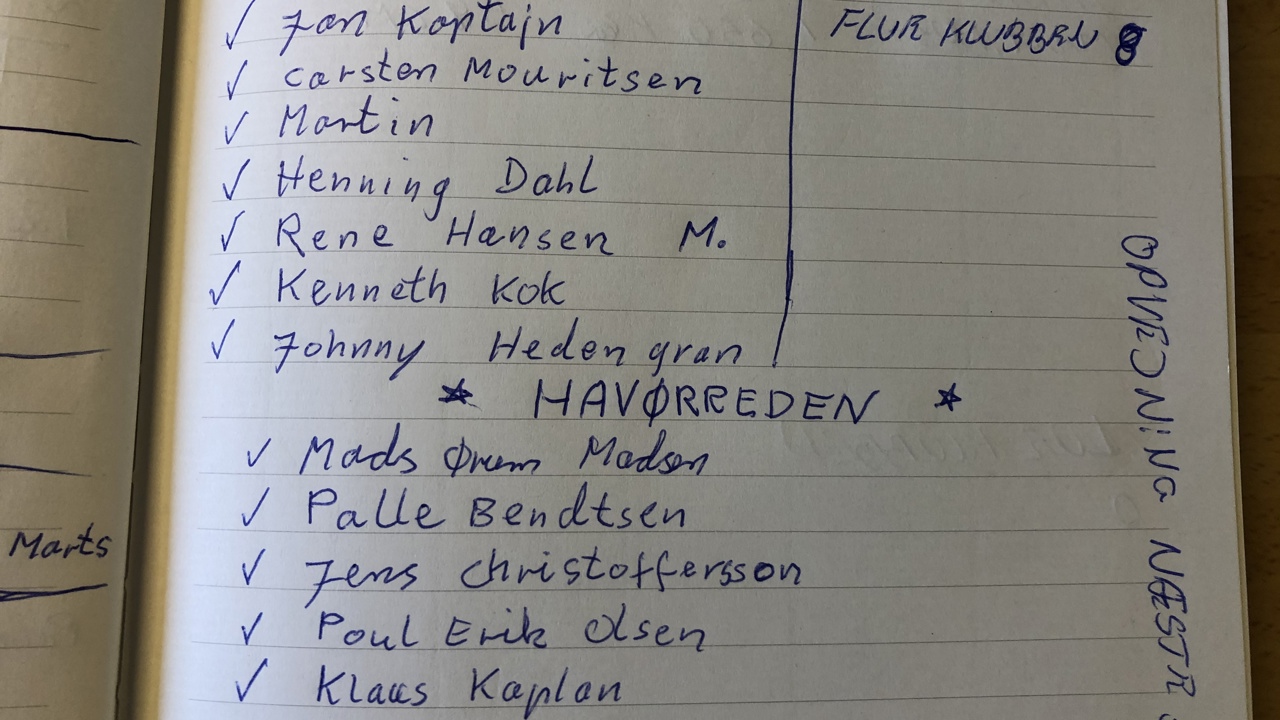 Jan Kaptajn
FLUE KLUBBEN 8
Carsten Mouritsen
Martin
Henning Dahl
Rene Hansen M.
Kenneth Kok
Johnny Heden gran
* HAVØRREDEN *
Mads Ørum Madsen
Palle Bendtsen
Jens Christoffersson
Poul Erik Olsen
Klaus Kaplan
Marts